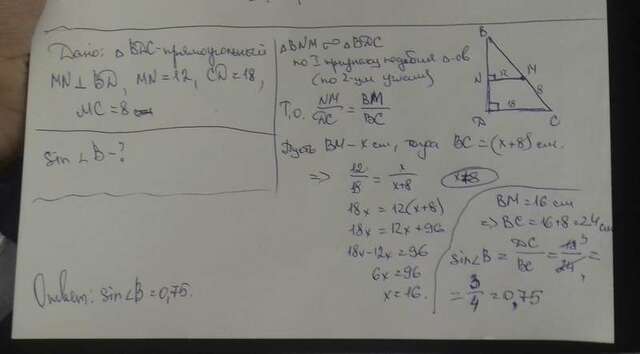 Дано: △ BDC-прямоугольный
MN ⊥ BD, MN = 12, CD = 18,
MC = 8
sin ∠B - ?
Ответ: sin∠B = 0,75.
△BNM ∾ △BDC
по I признаку подобия △-ов
(по 2-ум углам)
Т.о. NM/DC = BM/BC
Пусть BM - x см, тогда BC = (x+8) см.
⇒ 12/18 = x/(x+8)
18x = 12(x+8)
18x = 12x + 96
18x - 12x = 96
6x = 96
x = 16.
B
N 12 M
8
D 18 C
BM = 16 см
⇒ BC = 16+8 = 24 см
sin∠B = DC/BC = 18 3/24 =
= 3/4 = 0,75